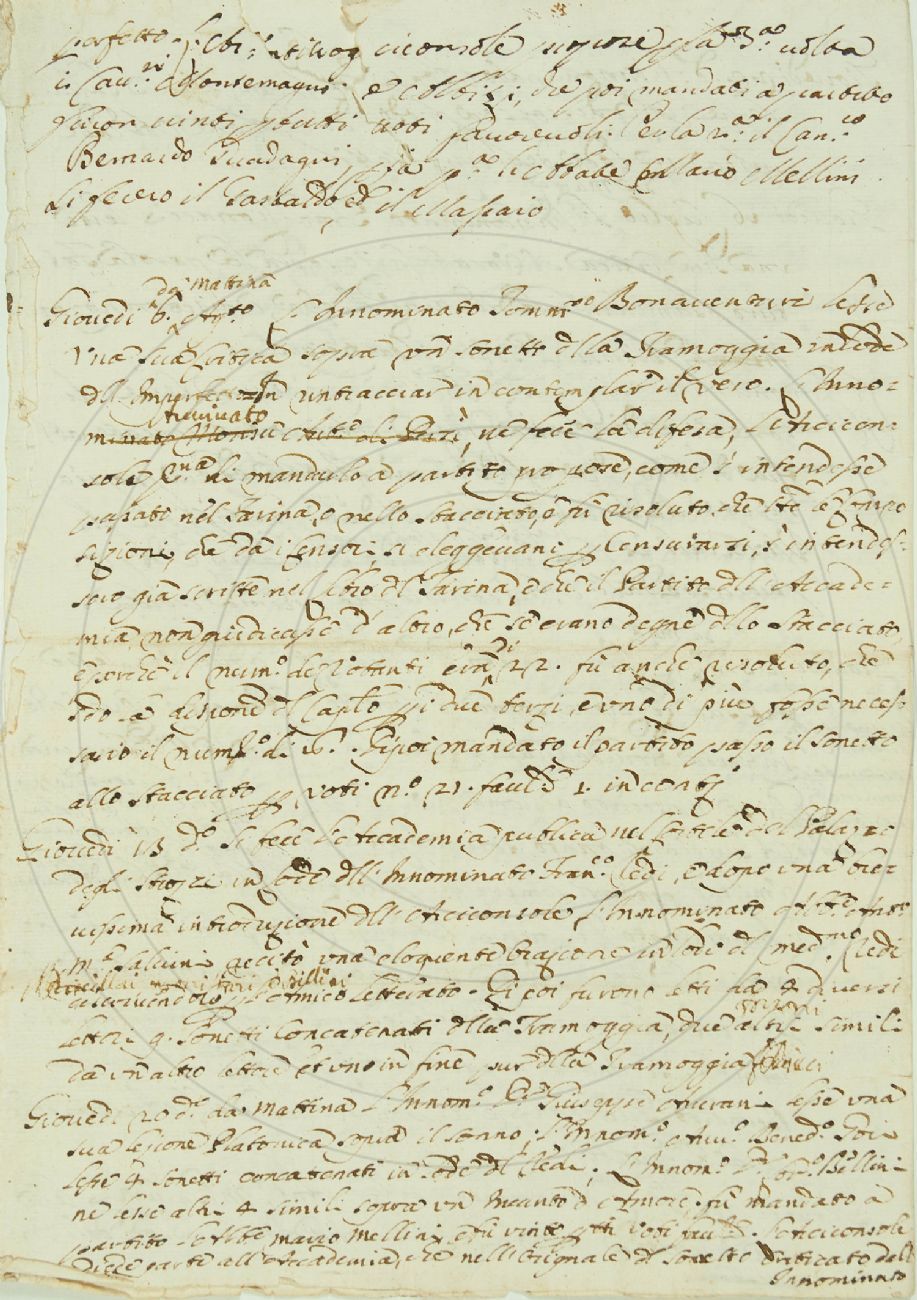 perfetto. l'Arciconsole propose p la 3.ª volta
il Cav.re Montemagni e , che poi mandati a partito
furon vinti p tutti voti favorevoli. e p la 2.ª il Can.co
Bernardo Guadagni, e p la p.ª l'Abbate Mario Mellini
Si fecero il Castaldo, ed il Massaio
da Mattina
Giovedì 6. Ag.to L'Innominato Tomm.o Bonaventuri lesse
una sua Critica sopra un sonetto della Tramoggia in lode
dell' in rintracciar in contemplar il vero. L'Inno=
Avvivato
minato , ne fece la difesa, L'Arcicon=
solo p.ma di mandarlo a partito propose, come s'intendesse
passato nel Farina, o nello Stacciato, e fu risoluto, che tt.e le Compo
sizioni, che da i Censori si eleggevano p Censurarsi, s'intendes=
sero già scritte nel libro d.l Farina, e che il Partito dell'Accade=
mia non giudicasse d'altro, che se erano degne dello Stacciato,
e perchè il num.o de Votanti era di 22. fu anche risoluto, che
p i due terzi, e uno di più fosse neces=
sario il num.o di 16. E poi mandato il partito passò il sonetto
allo Stacciato p voti n.o 21. fav.li 1. in cont.o
Giovedì 13 d.o Si fece l'Accademia publica nel Cortile del Palazzo
degli Strozzi in lode dell' Innominato Fran.co Redi, e dopo una brev=
issima introduzione dell'Arciconsole L'Innominato Ab.te Ant.o
M.a Salvini recitò una eloquente orazione in lode del med.mo Redi
letterato. E poi furono letti da 4 diversi
Lettori 9. Sonetti Concatenati della Tramoggia, due altri simili
da un altro lettore et uno in fine pur della Tramoggia
Giovedì 20 d.o da Mattina L'Innom.o Giuseppe Averani lesse una
sua lezione Platonica sopra il sonno; L'Innom.o Avv.o Bened.o Gori
lesse 4 sonetti concatenati in lode del Redi; L'Innom.o Bellini
ne lesse altri 4 simili sopra un Incanto d'Amore. fu mandato a
partito l'Ab.te Mario Mellini, e fu vinto p tt.i voti fav.li. L'Arciconsolo
diede parte all'Accademia, che nell'Originale del Sonetto Criticato dall'
Innominato